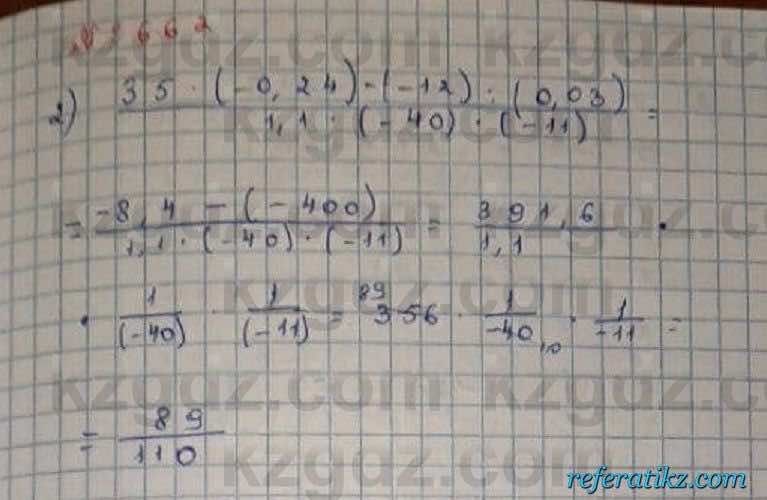 № 662
2) 35 · (-0,24) - (-12) : (0,03) / 1,1 · (-40) · (-11) =
= -8,4 - (-400) / 1,1 · (-40) · (-11) = 391,6 / 1,1 ·
· 1 / (-40) · 1 / (-11) = 89 356 · 1 / -40 10 · 1 / -11 =
= 89 / 110
kzgdz.com
referatikz.com